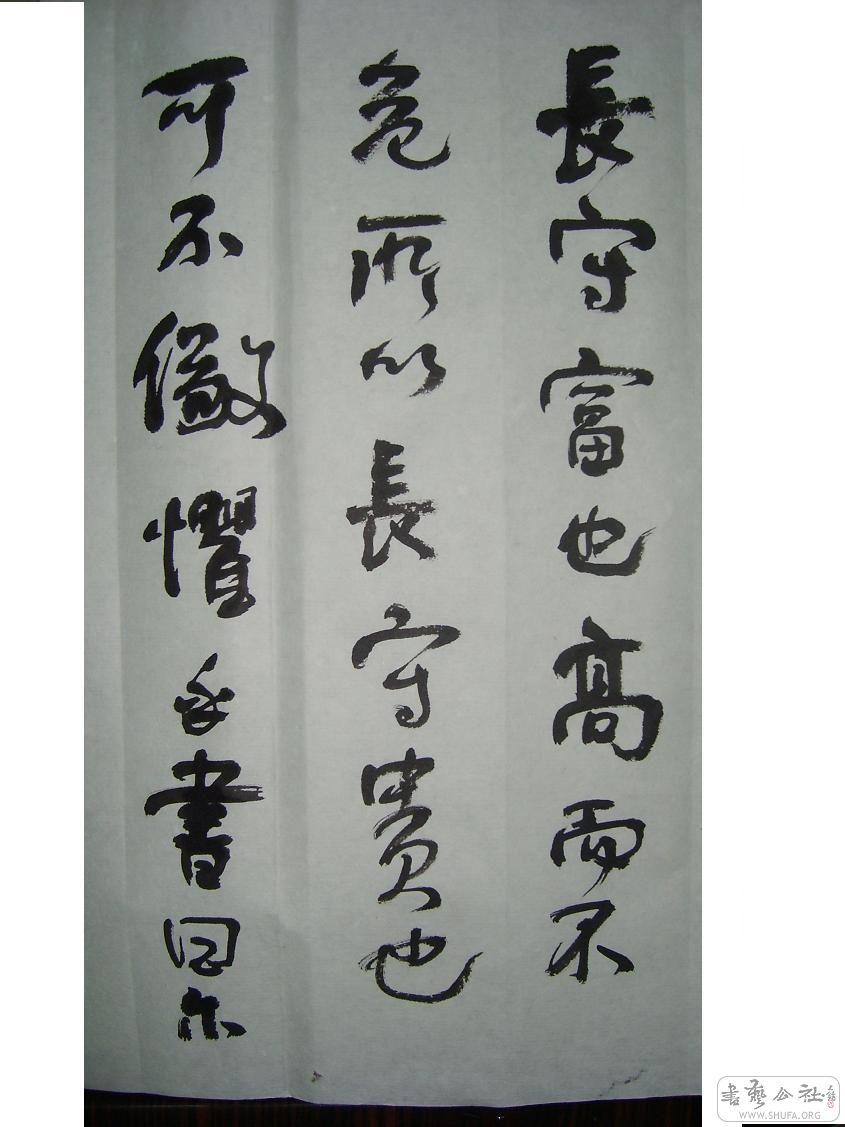 長守富也高而不
危所以長守貴也
可不儆懼乎書曰尔
書藝公社
WWW.SHUFA.ORG